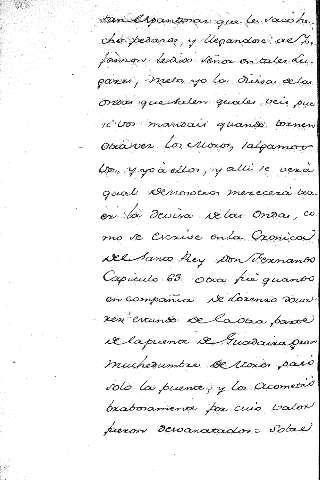 tan espantosas que les sacó he-
cho pedazos, y llegandose al In-
fanzon le dixo señor en tales Lu-
gares, meta yo la divisa de las
ondas que tales quales veis, que
si vos mandais quando tornen
otra vez los Moros, salgamos
vos, y yo á ellos, y alli se verá
qual de nosotros merecerá tra-
er la devisa de las ondas, co-
mo se escrive en la Cronica
del Santo Rey Don Fernando
Capitulo 63. Otra fué quando
en compañia de Lorenzo Sua-
rez estando de la otra parte
de la puente de Guadaira gran
muchedumbre de Moros, pasó
solo la puente, y los acometió
brabosamente por cuio valor
fueron desvaratados = Sobre